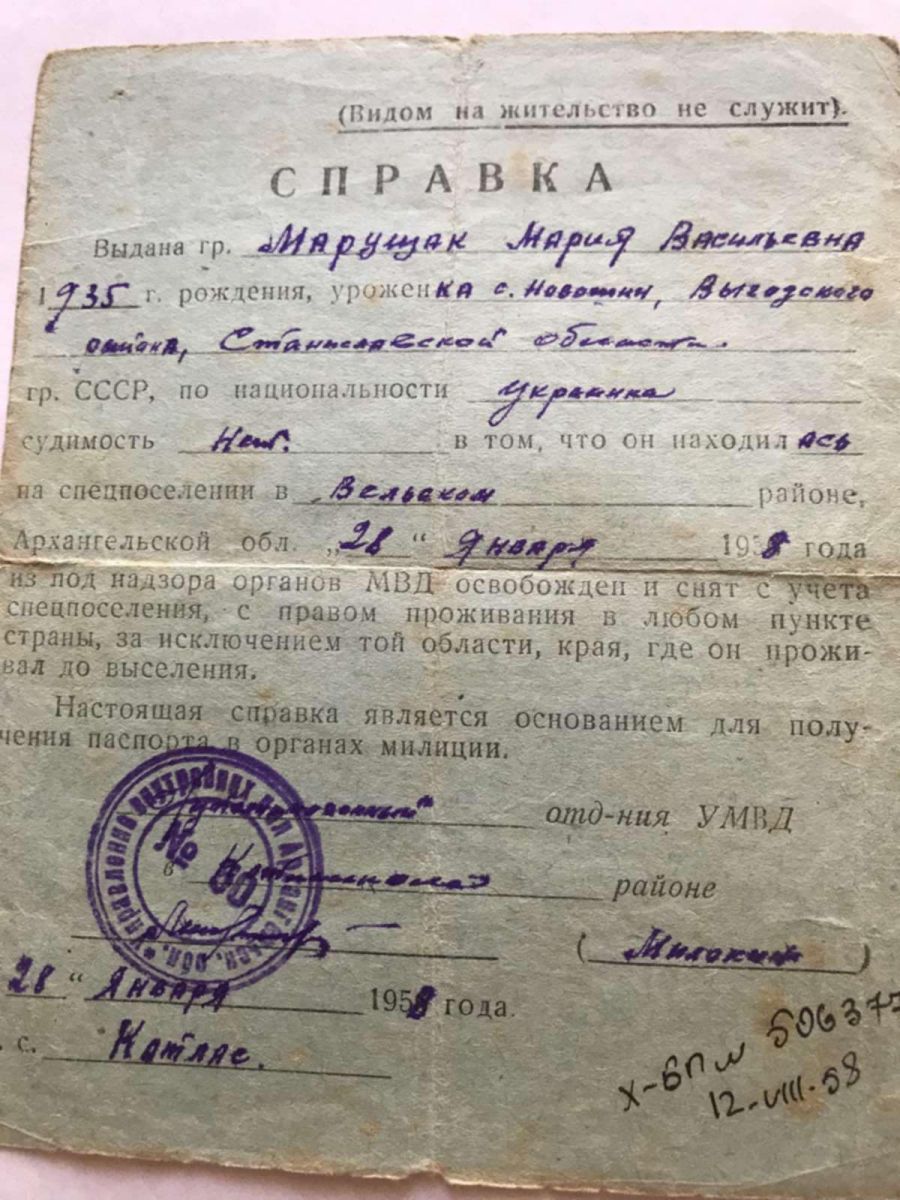 (Видом на жительство не служит).
СПРАВКА
Выдана гр. Марущак Мария Васильевна
1935 г. рождения, уроженка с. Новошин, Выгодского
района, Станиславской области.
гр. СССР, по национальности украинка
судимость Нет. в том, что он находилась
на спецпоселении в Вельском районе,
Архангельской обл. „28“ Января 1958 года
из под надзора органов МВД освобожден и снят с учета
спецпоселения, с правом проживания в любом пункте
страны, за исключением той области, края, где он прожи-
вал до выселения.
Настоящая справка является основанием для полу-
чения паспорта в органах милиции.
Управление внутренних дел Архангельск. обл.
№
отд-ния УМВД
в районе
28 “ Января 1958 года.
с. Катлас.
Х-БП № 506377
12-VIII-58